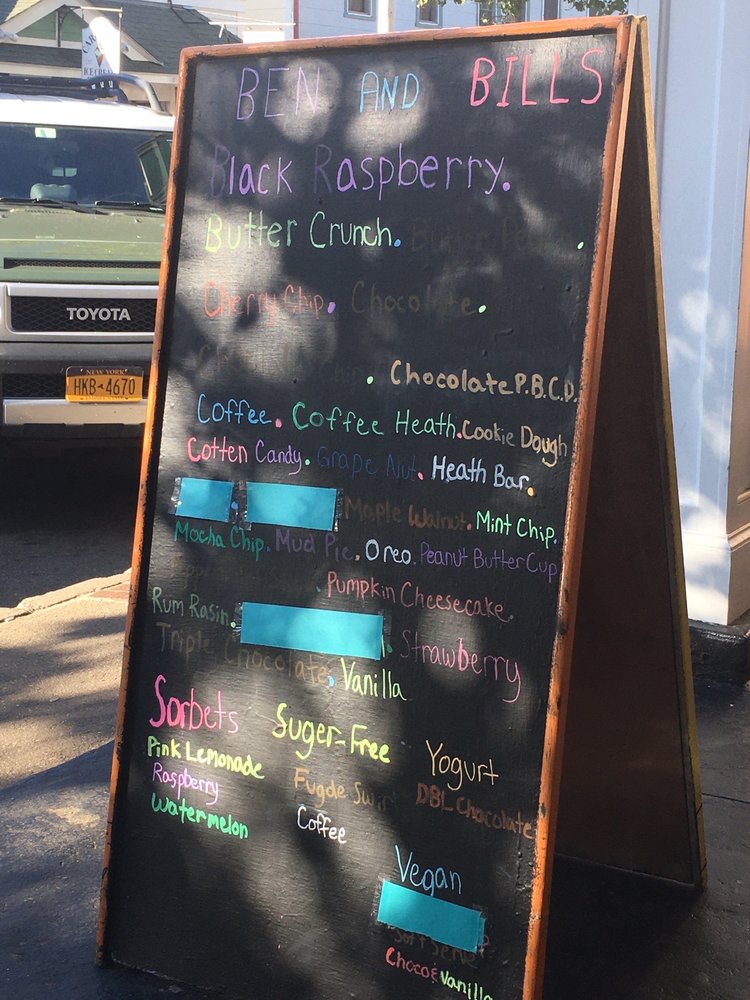 BEN AND BILLS
Black Raspberry.
Butter Crunch. Butter Pecan.
Cherry Chip. Chocolate.
Chocolate P.B.C.D.
Coffee. Coffee Heath. Cookie Dough
Cotten Candy. Grape Nut. Heath Bar.
Maple Walnut. Mint Chip.
Mocha Chip. Mud Pie. Oreo. Peanut Butter Cup
Pumpkin Cheesecake.
Rum Rasin. Strawberry
Triple Chocolate. Vanilla
Sorbets
Pink Lemonade
Raspberry
Watermelon
Suger-Free
Fugde Swirl
Coffee
Yogurt
DBL Chocolate
Vegan
Soft Serve
Choco & Vanilla
TOYOTA
NEW YORK
HKB 4670